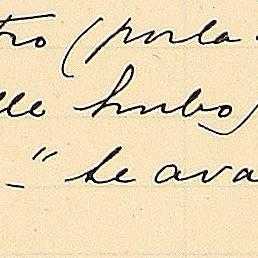 tro (por la
lle hubo)
– " se ava